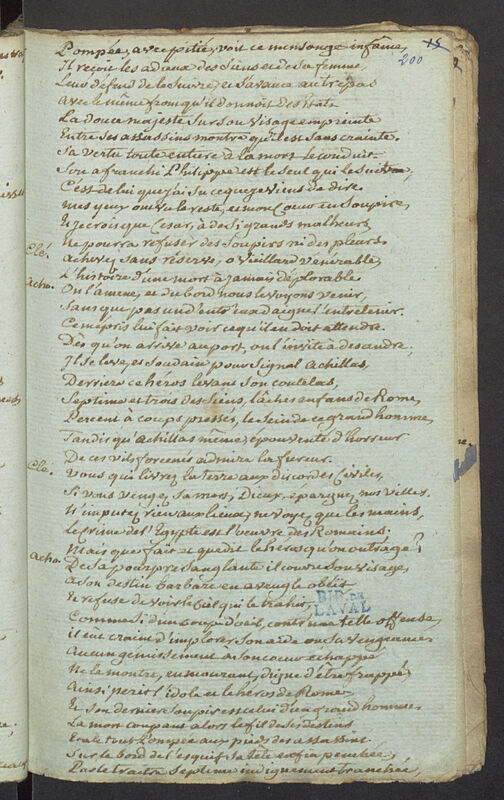 15
200
Pompée, avec pitié, voit ce mensonge infâme,
Il reçoit les adieux des siens et de sa femme
Leur défend de le suivre, et s'avance au trépas
Avec le même front qu'il donnoit des Etats
La douce majesté sur son visage empreinte
Entre ses assassins montre qu'il est sans crainte.
Sa vertu toute entiere à la mort le conduit.
Son affranchi Philippe est le seul qui le suit
C'est de lui que j'ai su ce que je viens de dire.
mes yeux ont vu le reste, et mon Coeur en soupire,
Et je crois que Cesar, à de si grands malheurs,
Ne pourra refuser des soupirs ni des pleurs.
Clé. Achevez sans réserve, o vieillard vénérable,
L'histoire d'une mort à jamais déplorable.
Acho. On l'amène, et du bord nous le voyons venir,
Sans que pas un d'entr'eux daigne l'entretenir.
Ce mépris lui fait voir ce qu'il en doit attendre.
Dès qu'on arrive au port, on l'invite à descendre.
Il se leve, et soudain pour signal Achillas,
Derriere ce héros levant son coutelas,
Septime et trois des siens, lâches enfans de Rome,
Percent à coups pressés, le sein de ce grand homme,
Tandis qu'Achillas même, épouventé d'horreur
De ces vils forcenés admira la fureur.
Clé. Vous qui livrez la terre aux discordes civiles,
Si vous vengez sa mort, Dieux, épargnez nos villes.
N'imputez rien aux lieux; ne voyez que les mains,
Le crime de l'Egypte est l'oeuvre des Romains.
Acho. Mais que fait et que dit le héros qu'on outrage?
De sa pourpre sanglante il couvre son visage,
à son destin barbare en aveugle obéit
Et refuse de voir le Ciel qui le trahit,
Comme si d'un coup d'oeil, contr'une telle offense,
il eut craint d'implorer son aide ou sa vengeance.
Aucun gémissement à son coeur échappé
Ne le montre, en mourant, digne d'être frappé;
Ainsi périt l'idole et le héros de Rome,
Et son dernier soupir est celui d'un grand homme.
La mort coupant alors le fil de ses destins
Etale tout Pompée aux pieds des assassins.
Sur le bord de l'esquif sa tête enfin penchée,
Par le traitre Septime indignement tranchée,
BIB. DE
LAVAL